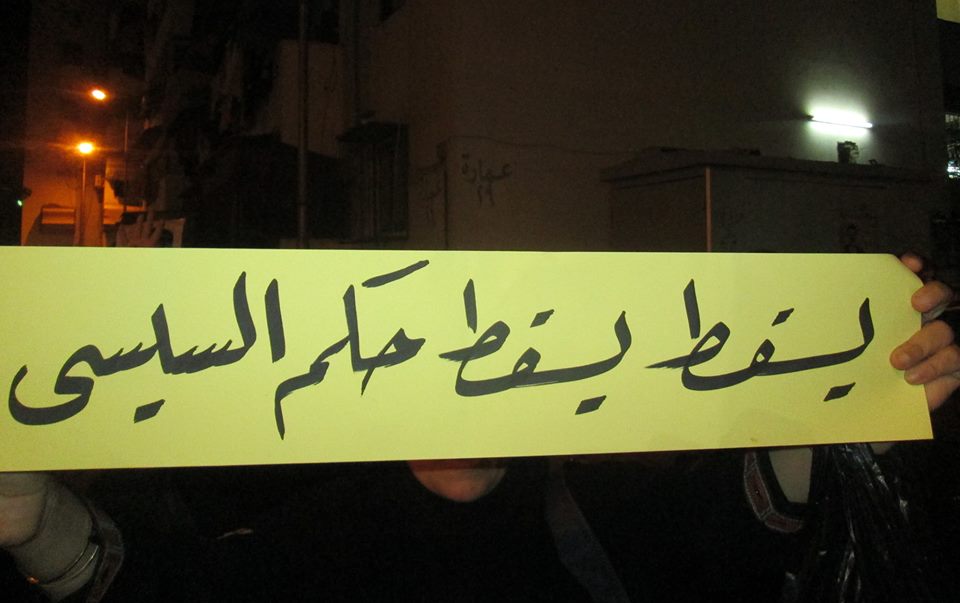 عمارة
٢٩
يسقط يسقط حكم السيسى